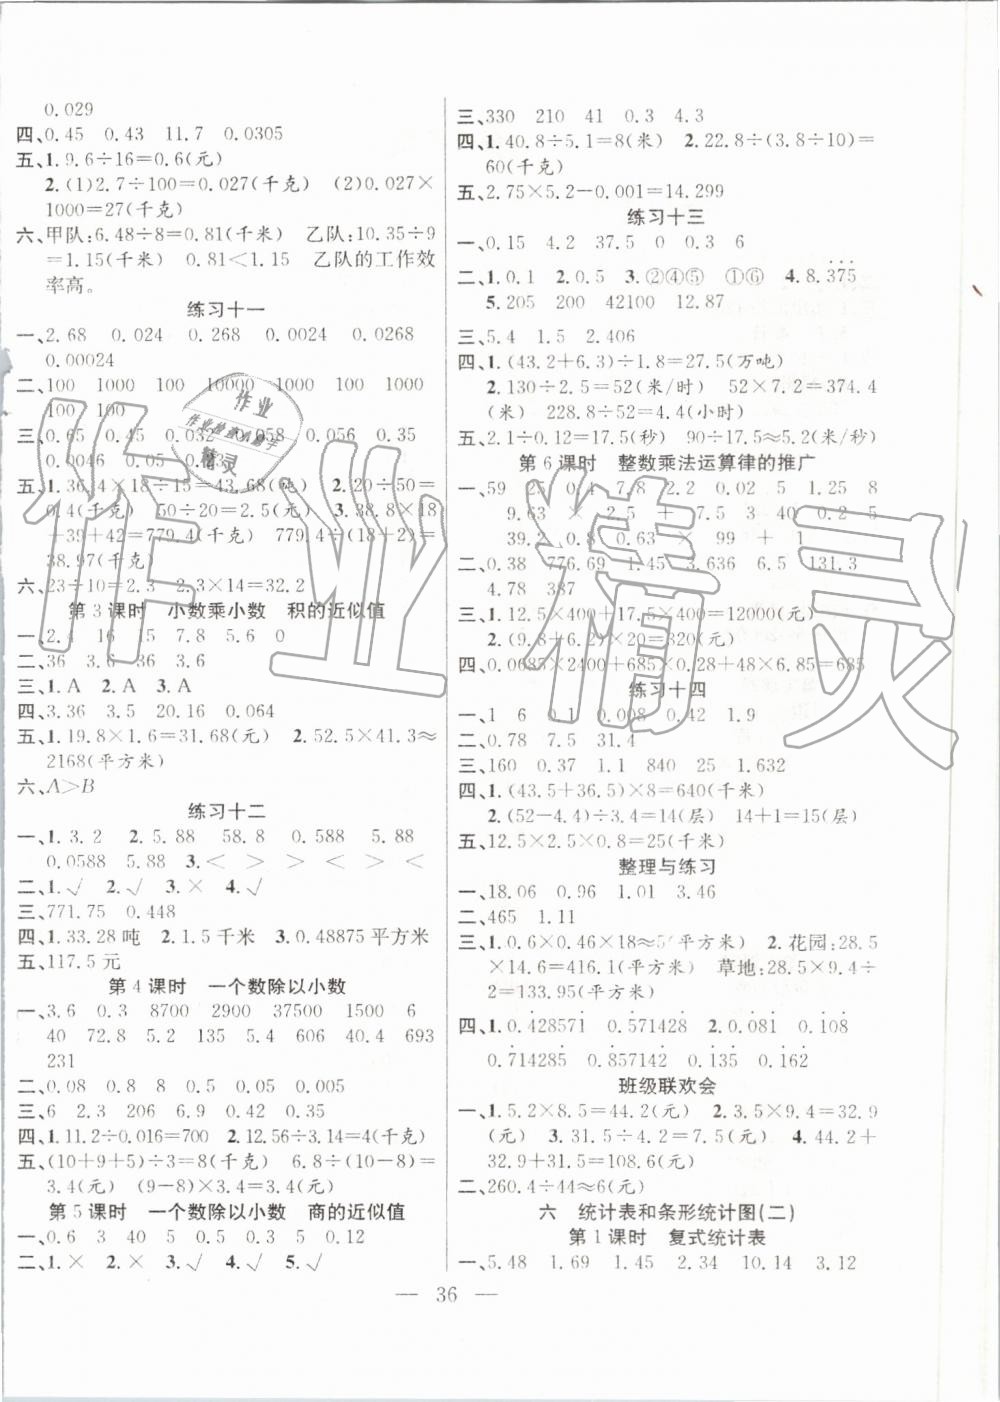 0.029
四、0.45 0.43 11.7 0.0305
五、1.9.6÷16=0.6(元)
2.(1)2.7÷100=0.027(千克) (2)0.027×
1000=27(千克)
六、甲队:6.48÷8=0.81(千米) 乙队:10.35÷9
=1.15(千米) 0.81<1.15 乙队的工作效
率高。
练习十一
一、2.68 0.024 0.268 0.0024 0.0268
0.00024
二、100 1000 100 10000 1000 100 1000
100 100
三、0.65 0.45 0.032 0.058 0.056 0.35
0.0046 0.05
五、1.36.4×18÷15=43.68(吨) 2.20÷50=
0.4(千克) 50÷20=2.5(元) 3.38.8×18
+39+42=779.4(千克) 779.4÷(18+2)=
38.97(千克)
六、23÷10=2.3 2.3×14=32.2
第3课时 小数乘小数 积的近似值
一、2.4 16 15 7.8 5.6 0
二、36 3.6 36 3.6
三、1.A 2.A 3.A
四、3.36 3.5 20.16 0.064
五、1.19.8×1.6=31.68(元) 2.52.5×41.3≈
2168(平方米)
六、A>B
练习十二
一、1.3.2 2.5.88 58.8 0.588 5.88
0.0588 5.88 3.< > > < > <
二、1.√ 2.√ 3.× 4.√
三、771.75 0.448
四、1.33.28吨 2.1.5千米 3.0.48875平方米
五、117.5元
第4课时 一个数除以小数
一、3.6 0.3 8700 2900 37500 1500 6
40 72.8 5.2 135 5.4 506 40.4 693
231
二、0.08 0.8 8 0.5 0.05 0.005
三、6 2.3 206 6.9 0.42 0.35
四、1.11.2÷0.016=700 2.12.56÷3.14=4(千克)
五、(10+9+5)÷3=8(千克) 6.8÷(10-8)=
3.4(元) (9-8)×3.4=3.4(元)
第5课时 一个数除以小数 商的近似值
一、0.6 3 40 5 0.5 0.3 5 0.12
二、1.× 2.× 3.√ 4.√ 5.√
三、330 210 41 0.3 4.3
四、1.40.8÷5.1=8(米) 2.22.8÷(3.8÷10)=
60(千克)
五、2.75×5.2-0.001=14.299
练习十三
一、0.15 4.2 37.5 0 0.3 6
二、1.0.1 2.0.5 3.②④⑤ ①⑥ 4.8.3̇7̇5̇
5.205 200 42100 12.87
三、5.4 1.5 2.406
四、1.(43.2+6.3)÷1.8=27.5(万吨)
2.130÷2.5=52(米/时) 52×7.2=374.4
(米) 228.8÷52=4.4(小时)
五、2.1÷0.12=17.5(秒) 90÷17.5≈5.2(米)
第6课时 整数乘法运算律的推广
一、59 25 0.4 7.8 2.2 0.02 5 1.25 8
9.63 × 2.5 + 7.5 3 40 0.2 5
39.2 0.8 0.63 × 99 + 1
二、0.38 776.8 1.45 3.36 6.5 131.3
4.78 387
三、1.12.5×400+17.5×400=12000(元)
2.(9.8+6.2)×20=320(元)
四、0.0685×2400+685×0.28+48×6.85=685
练习十四
一、1 6 0.1 0.008 0.42 1.9
二、0.78 7.5 31.4
三、160 0.37 1.1 840 25 1.32
四、1.(43.5+36.5)×8=640(千米)
2.(52-4.4)÷3.4=14(层) 14+1=15(层)
五、12.5×2.5×0.8=25(千米)
整理与练习
一、18.06 0.96 1.01 3.46
二、465 1.11
三、1.0.6×0.46×18≈5(平方米) 2.花园:28.5
×14.6=416.1(平方米) 草地:28.5×9.4÷
2=133.95(平方米)
四、1.0.4̇28571̇ 0.5̇71428̇ 2.0.0̇81̇ 0.1̇08̇
0.7̇14285̇ 0.8̇57142̇ 0.1̇35̇ 0.1̇62̇
班级联欢会
一、1.5.2×8.5=44.2(元) 2.3.5×9.4=32.9
(元) 3.31.5÷4.2=7.5(元) 4.44.2+
32.9+31.5=108.6(元)
二、260.4÷44≈6(元)
六 统计表和条形统计图(二)
第1课时 复式统计表
一、5.48 1.69 4.45 2.34 10.14 3.12
— 36 —
作业精灵
作业
作业检查小助手
精灵